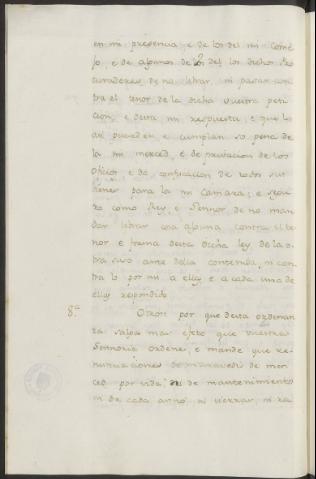 en mi presencia e de los del mi Conse
jo, e de algunos de los del los dichos Pro
curadores de no librar, ni pasar con
tra el tenor de la dicha vuestra peti
cion, e desta mi respuesta; e que lo
asi guarden e cumplan so pena de
la mi merced, e de privacion de los
oficios e de confiscacion de todos sus
vienes para la mi Camara; e seguro
como Rey, e Sennor de no man
dar librar cosa alguna contra el te
nor e forma desta dicha ley de la o
tra suso ante della contenida, ni con
tra lo por mi a ellas e a cada una de
ellas respondido
8.ª Otrosi por que desta ordenan
za salga mas efeto que vuestra
Sennoria ordene, e mande que re
nunciaciones de maravedis de mer
ced por vida, ni de mantenimiento
ni de cada anno, ni vierrar, ni ra